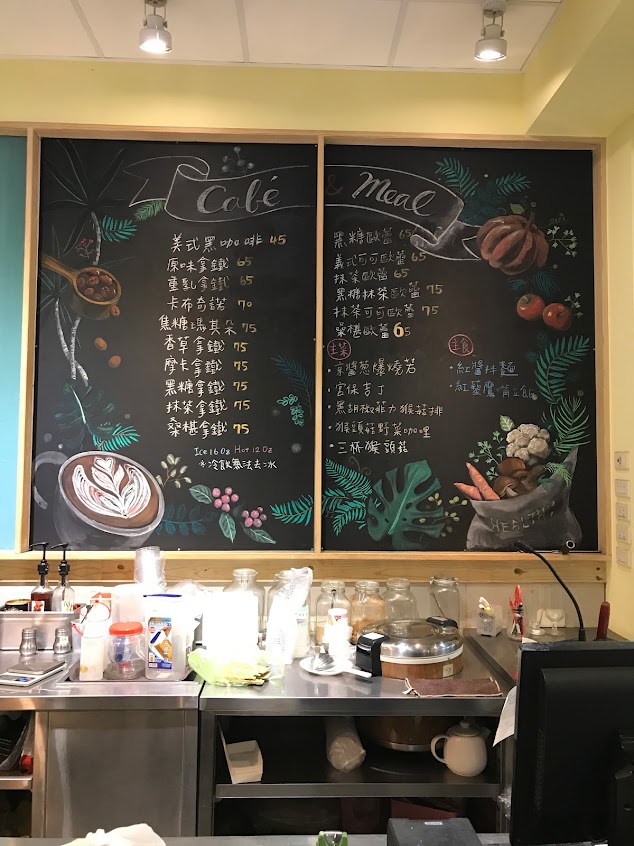 Café & Meal
美式黑咖啡 45
原味拿鐵 65
重乳拿鐵 65
卡布奇諾 70
焦糖瑪其朵 75
香草拿鐵 75
摩卡拿鐵 75
黑糖拿鐵 75
抹茶拿鐵 75
桑椹拿鐵 75
Ice 16 Oz Hot 12 Oz
※冷飲無法去冰
黑糖歐蕾 65
義式可可歐蕾 65
抹茶歐蕾 65
黑糖抹茶歐蕾 75
抹茶可可歐蕾 75
桑椹歐蕾 65
主菜
・京醬葱爆燒若
・宮保吉丁
・黑胡椒菲力猴菇排
・猴頭菇野菜咖哩
・三杯猴頭菇
主食
・紅醬拌麵
・紅藜鷹嘴豆飯
HEALTHY